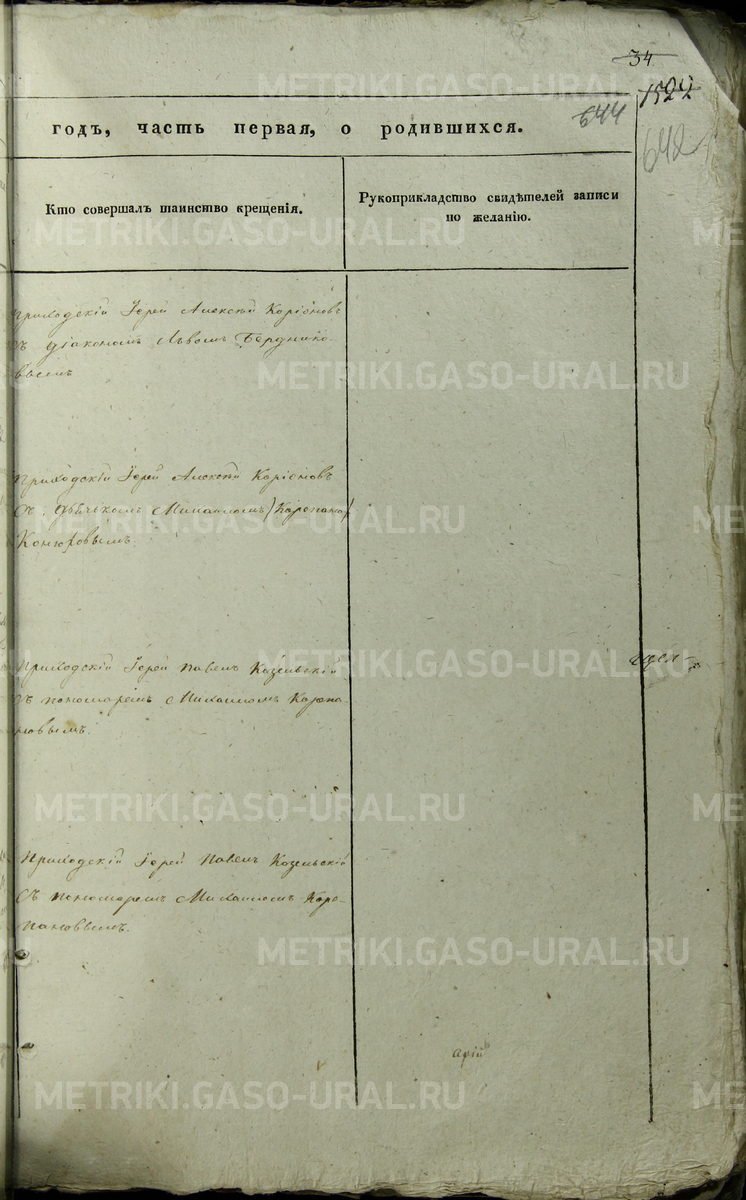 34
1522
644
642
годъ, часть первая, о родившихся.
Кто совершалъ таинство крещенія.
Рукоприкладство свидѣтелей записи
по желанію.
Приходскій Іерей Алексѣй Коріоновъ
съ діакономъ Львомъ Берднико-
вымъ
Приходскій Іерей Алексѣй Коріоновъ
съ дьячкомъ Михаиломъ
Конюховымъ.
Приходскій Іерей Павелъ Козельскій
съ пономаремъ Михаиломъ Корепа-
новымъ.
Приходскій Іерей Павелъ Козельскій
съ пономаремъ Михаиломъ Коре-
пановымъ.
арій
METRIKI.GASO-URAL.RU